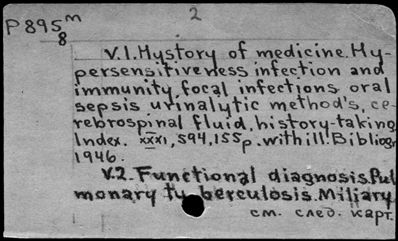 P895m
8
2
V.1.Hystory of medicine.Hy-
persensitiveness infection and
immunity, focal infections oral
sepsis urinalytic method's, ce-
rebrospinal fluid, history-taking
Index. XXXI, 594, 155p. with ill. Bibliogr
1946.
V.2. Functional diagnosis. Pul
monary tu berculosis. Miliary
см. след. карт.